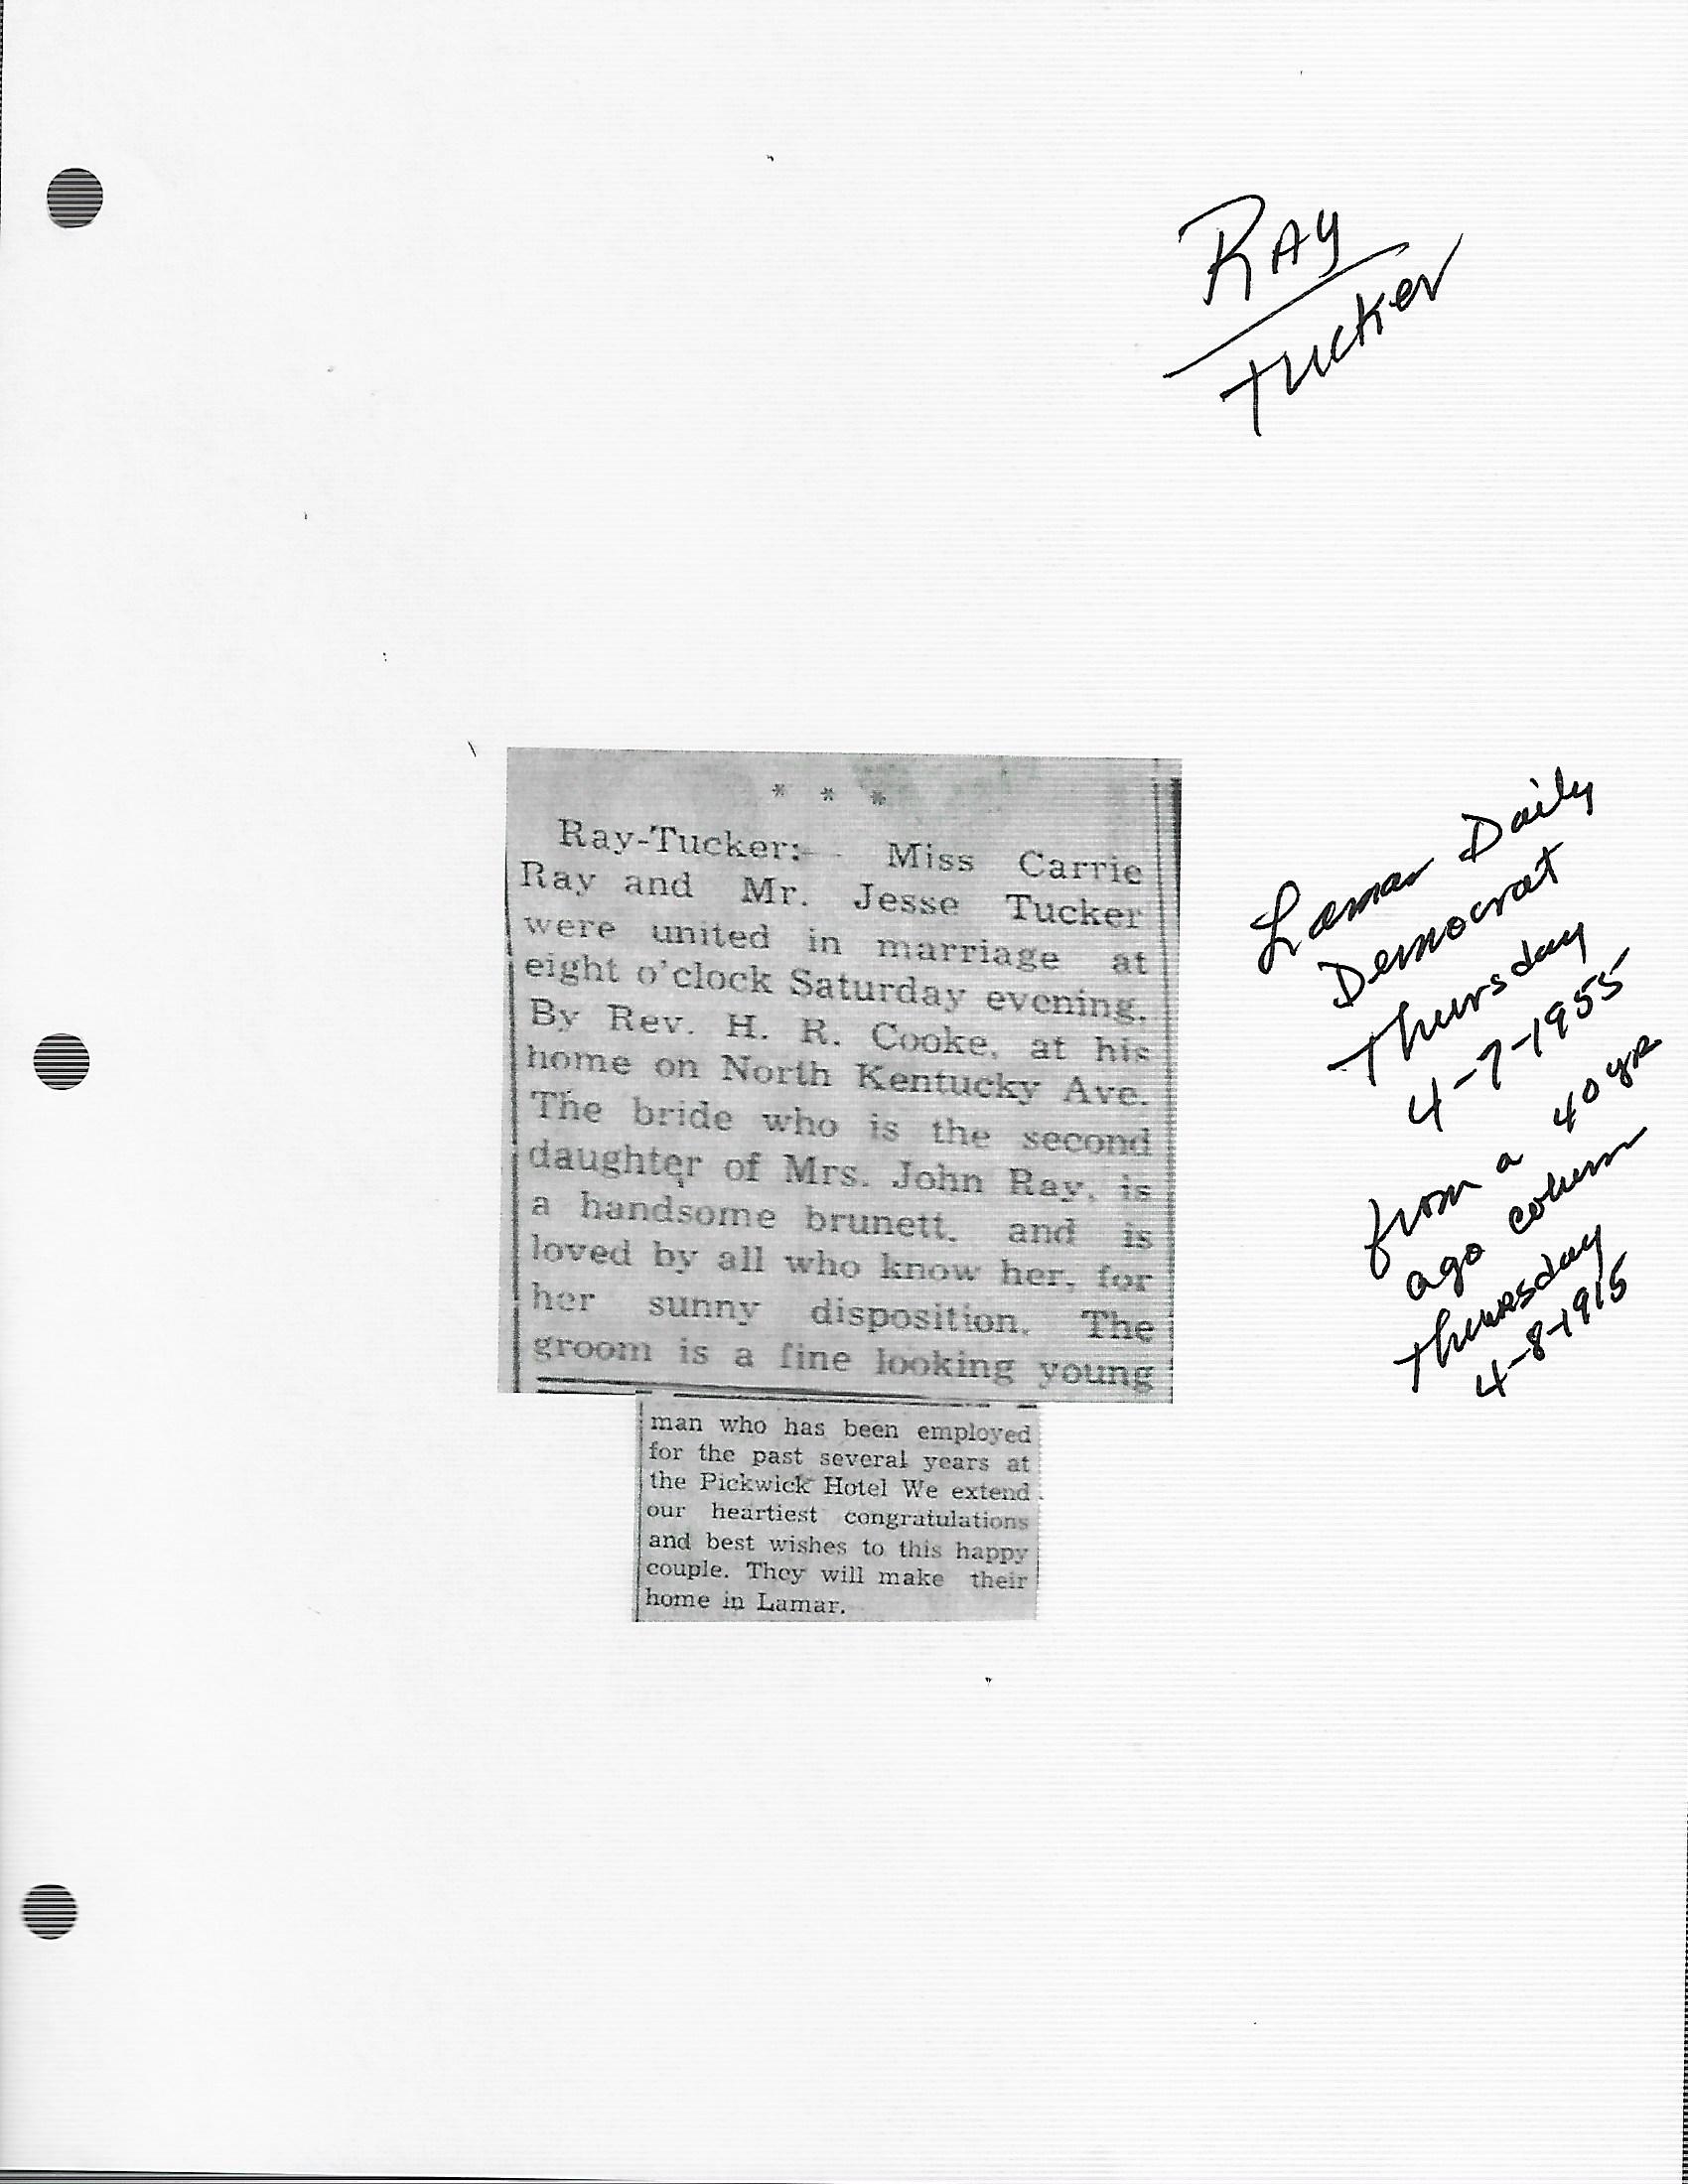 RAY
Tucker
* * *
Ray-Tucker:- - Miss Carrie
Ray and Mr. Jesse Tucker
were united in marriage at
eight o'clock Saturday evening.
By Rev. H. R. Cooke, at his
home on North Kentucky Ave.
The bride who is the second
daughter of Mrs. John Ray, is
a handsome brunett, and is
loved by all who know her, for
her sunny disposition. The
groom is a fine looking young
man who has been employed
for the past several years at
the Pickwick Hotel We extend
our heartiest congratulations
and best wishes to this happy
couple. They will make their
home in Lamar.
Lamar Daily
Democrat
Thursday
4-7-1955
from a 40 yr
ago column
Thursday
4-8-1915